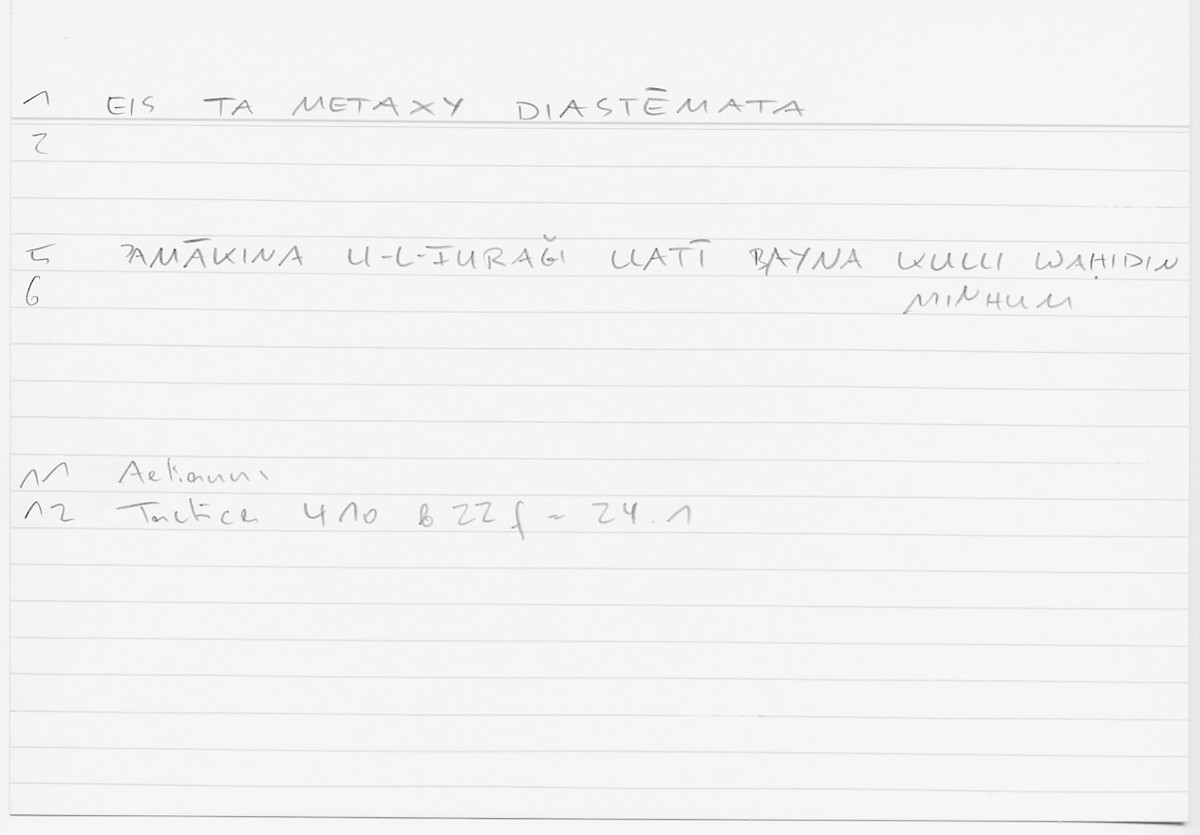 1 EIS TA METAXY DIASTĒMATA
2
5 ʾAMĀKINA LI-L-FURAǦI LLATĪ BAYNA KULLI WAḤIDIN
6 MINHUM
11 Aelianus
12 Tactica 410 b 22 f ~ 24.1